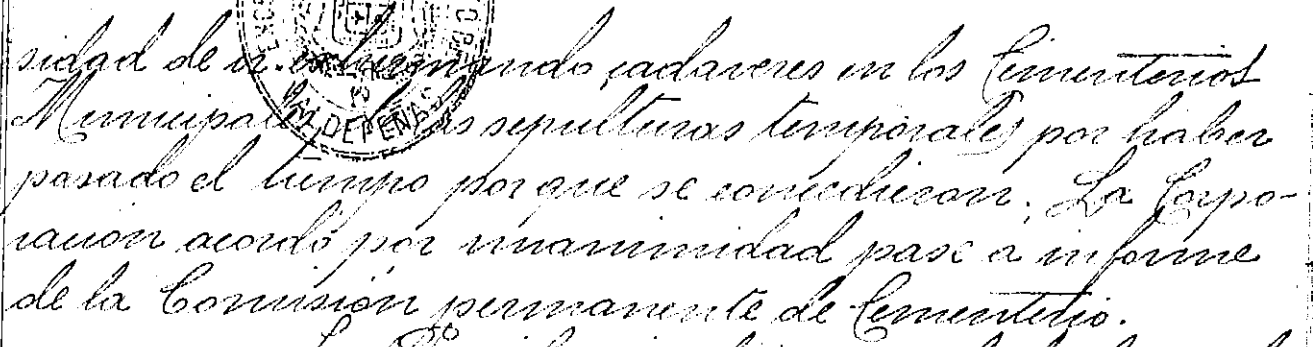 sidad de ir exhumando cadaveres en los Cementerios
Municipales, las sepulturas temporales por haber
pasado el tiempo porque se concedieron; La Corpo-
ración acordó por unanimidad pase á informe
de la Comisión permanente de Cementerio.
VALDEPEÑAS